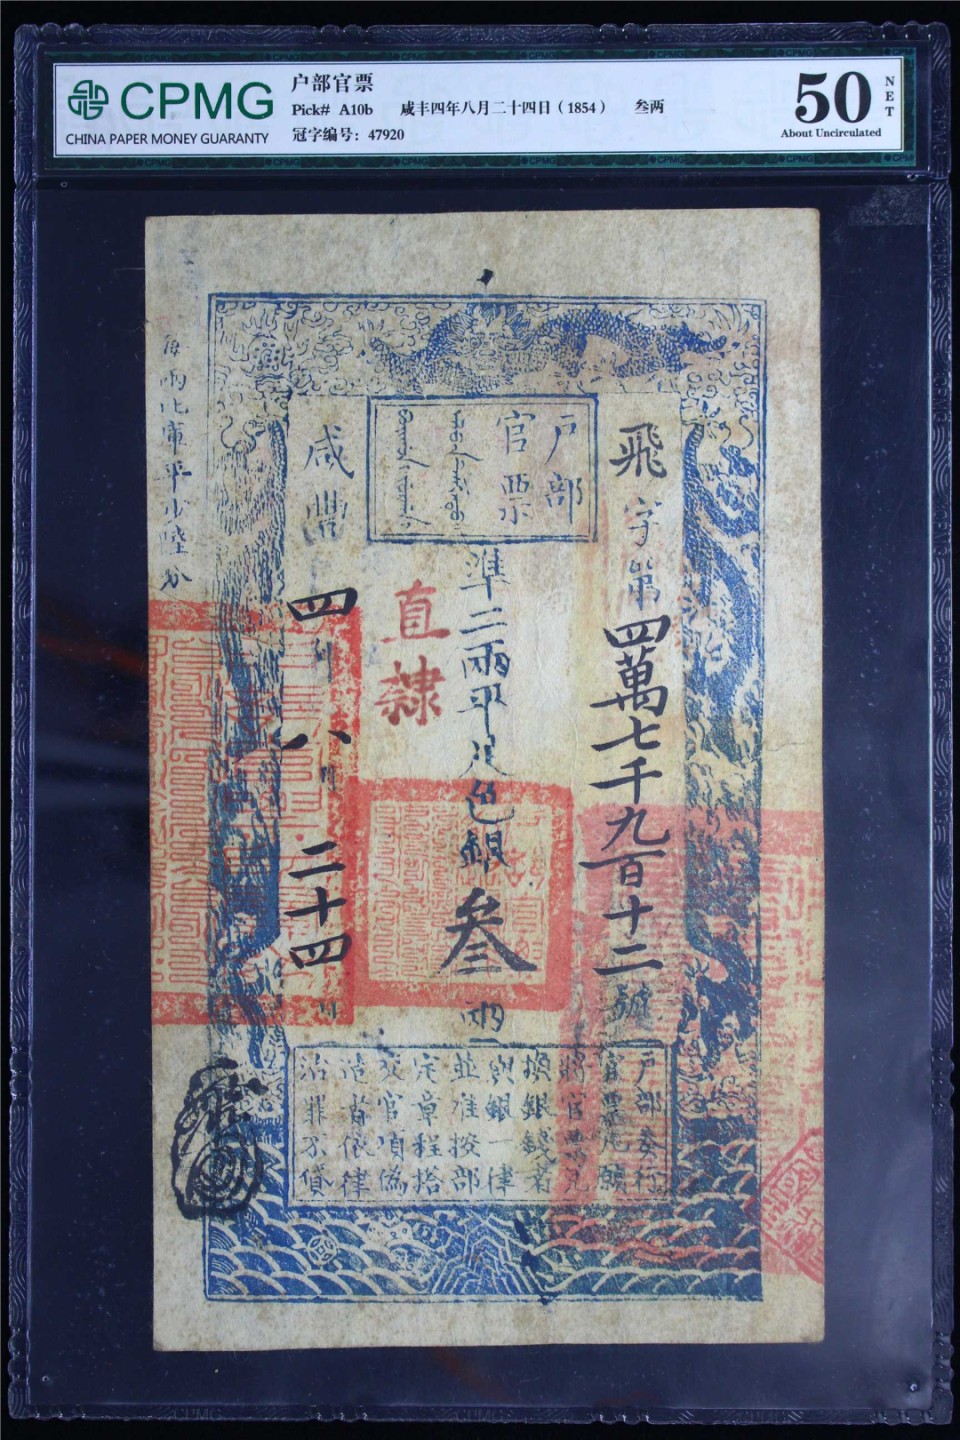 CPMG
CHINA PAPER MONEY GUARANTY
户部官票
Pick# A10b 咸丰四年八月二十四日（1854） 叁两
冠字编号：47920
50
NET
About Uncirculated
戶部
官票
飛字第四萬七千九百十二號
準二兩平足色銀叁兩
直隸
咸豐四年八月二十四日
每兩比庫平少陸分
戶部奏行
官票凡願
將官票兌
換銀錢者
與銀一律
並准按部
定章程搭
交官項偽
造者依律
治罪不貸